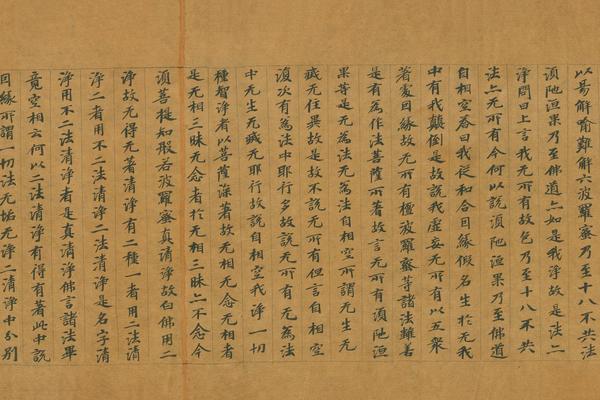 以易解喻難解六波羅蜜乃至十八不共法
湏陁洹果乃至佛道亦如是我淨故是法亦
淨問曰上言我无所有故色乃至十八不共
法亦无所有今何以說湏陁洹果乃至佛道
自相空荅曰我從和合因緣假名生於无我
中有我顛倒是故說我虛妄无所有以五衆
著處因緣故无所有檀波羅蜜等諸法雖善
是有為作法菩薩所著故言无所有湏陁洹
果等是无為法无為法自相空所謂无生无
滅无住異故是故不說无所有但言自相空
復次有為法中耶行多故說无所有无為法
中无生无滅无耶行故說自相空我淨一切
種智淨者以菩薩深著故无相无念无相者
是无相三昧无念者於无相三昧亦不念今
湏菩提知般若波羅蜜真清淨故白佛用二
淨故无得无著清淨有二種一者用二法清
淨二者用不二法清淨二法清淨是名字清
淨用不二法清淨者是真清淨佛言諸法畢
竟空相云何以二法清淨有得有著此中說
因緣所謂一切法无垢无淨二清淨中分別